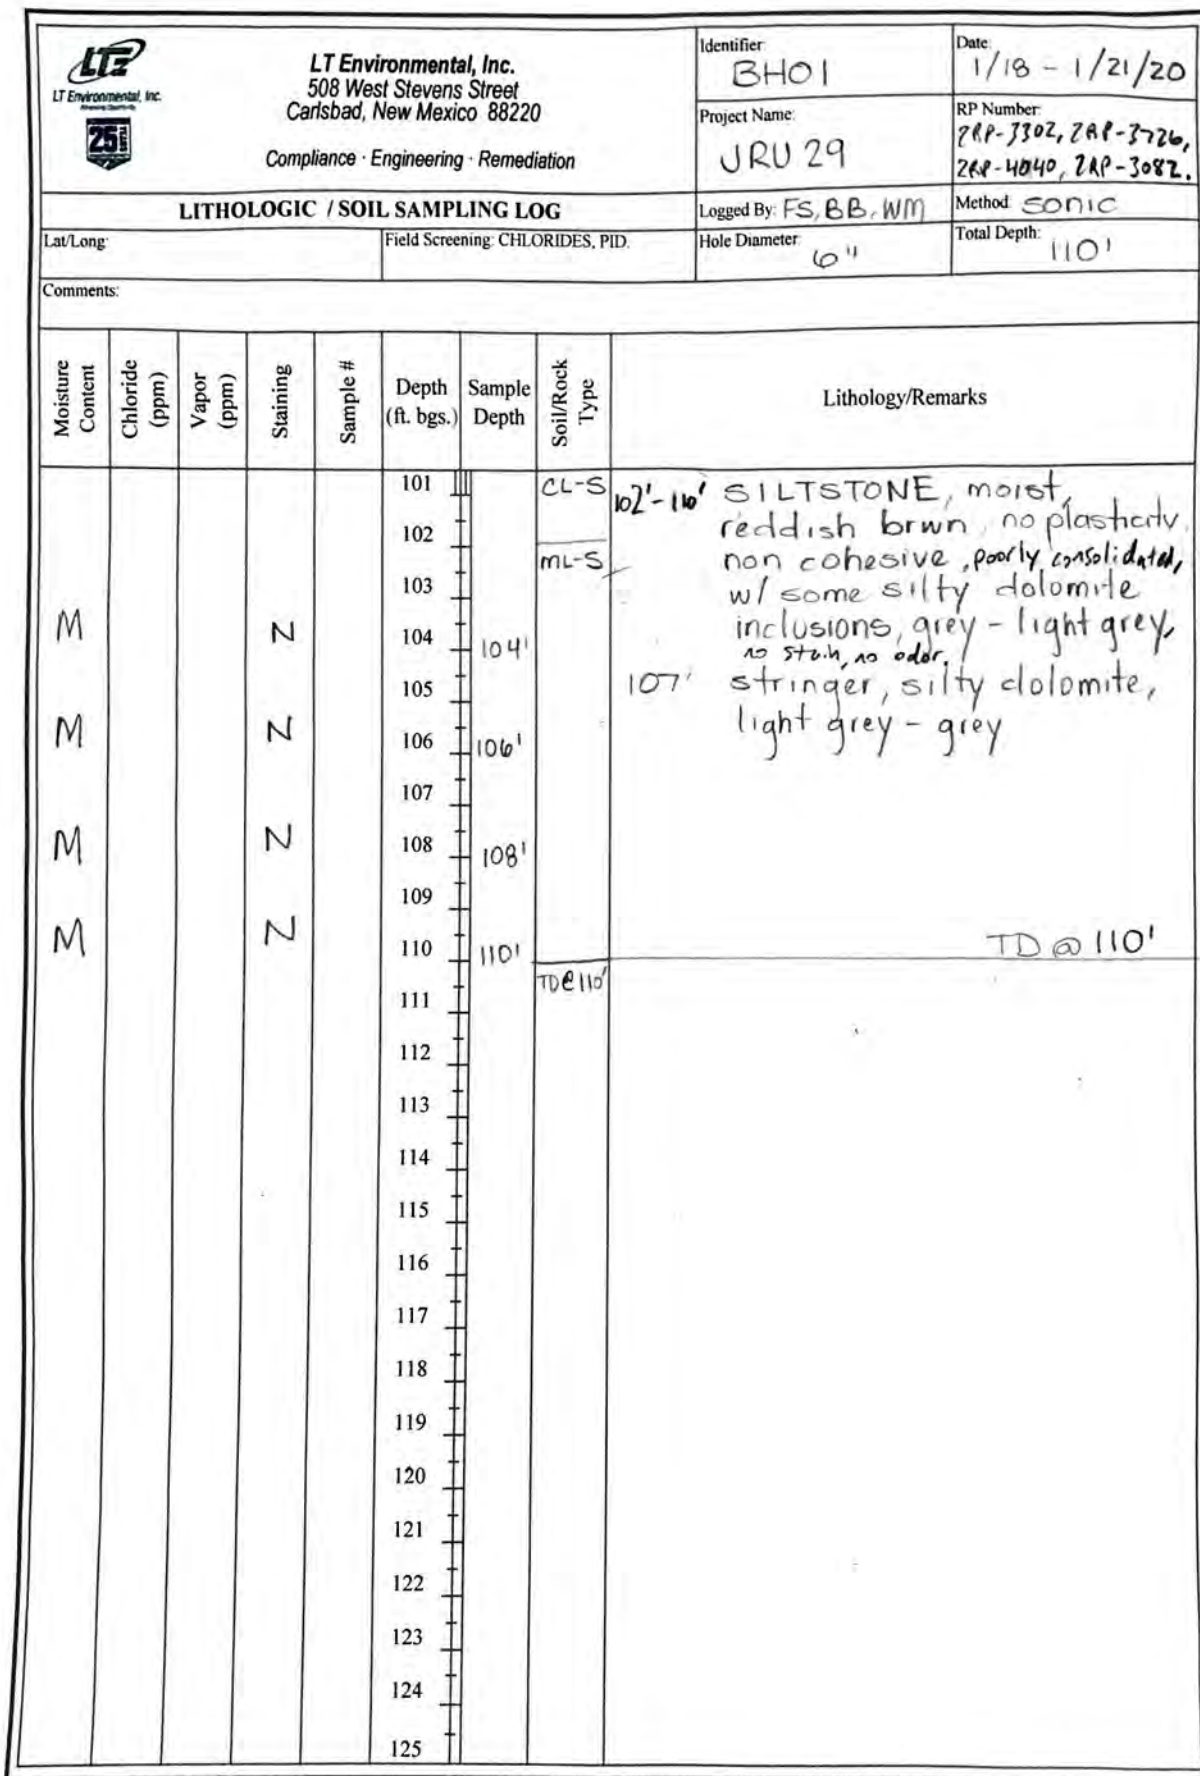 LTE
LT Environmental, Inc.
25
LT Environmental, Inc.
508 West Stevens Street
Carlsbad, New Mexico 88220
Compliance · Engineering · Remediation
Identifier:
BH01
Date:
1/18 - 1/21/20
Project Name:
JRU 29
RP Number:
2RP-3302, 2RP-3726,
2RP-4040, 2RP-3082.
LITHOLOGIC / SOIL SAMPLING LOG
Logged By: FS, BB, WM
Method: Sonic
Lat/Long:
Field Screening: CHLORIDES, PID.
Hole Diameter:
6"
Total Depth:
110'
Comments:
Moisture
Content
Chloride
(ppm)
Vapor
(ppm)
Staining
Sample #
Depth
(ft. bgs.)
Sample
Depth
Soil/Rock
Type
Lithology/Remarks
101 CL-S 102'-110' SILTSTONE, moist,
reddish brwn, no plasticity
102
ML-S non cohesive, poorly consolidated,
103 w/ some silty dolomite
M N 104 104' inclusions, grey - light grey,
no stain, no odor.
105 107' stringer, silty dolomite,
M N 106 106' light grey - grey
107
M N 108 108'
109
M N 110 110' TD @ 110'
TD@110'
111
112
113
114
115
116
117
118
119
120
121
122
123
124
125